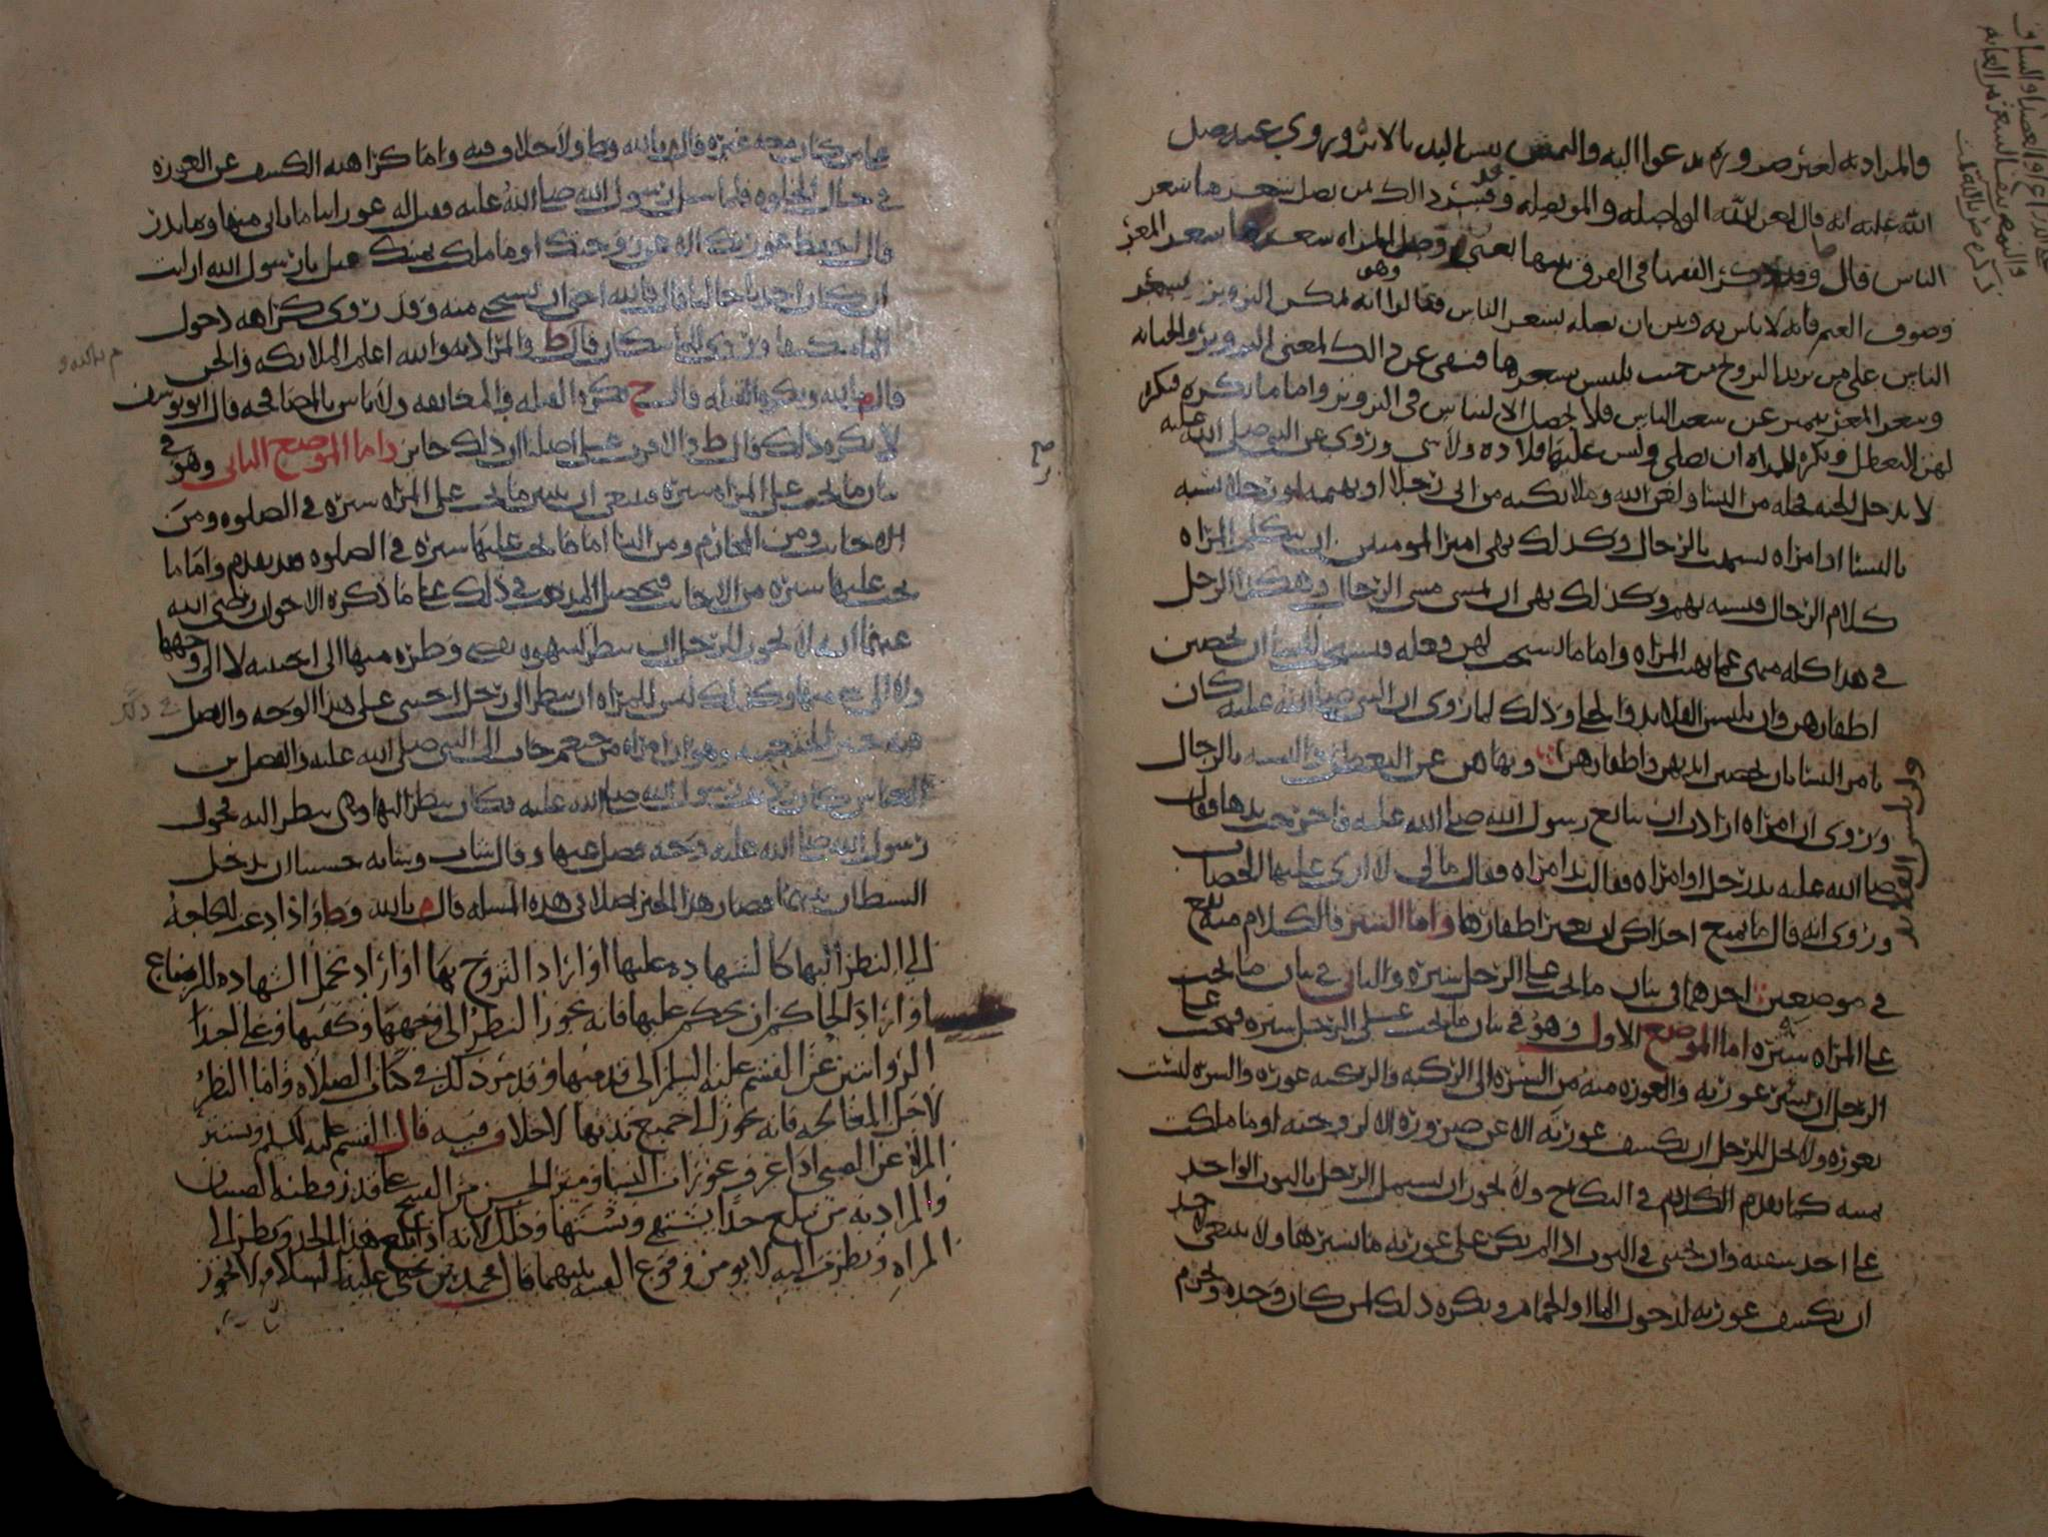 فالمراد به لغير ضرورة تدعوا اليه والنمش بيس اليد بالابر وروي عنه صلى
الله عليه انه قال لعن الله الواصله والموتصله وقد فسر ذالك بمن يصل شعرها بشعر
الناس قال وقد ذكر الفقها في الفرق بينها يعني وصل المراه شعرها بشعر المعز
وصوف الغنم فانه لا باس به وبين ان تصله بشعر الناس فقالوا انه يمكن التزويز وهو بشعر
الناس على من يريد التزوج من حيث يلتبس بشعرها فنهى عن ذالك لمعنى التزوير والخيانه
وشعر المعز يتميز عن شعر الناس فلا يحصل الالتباس في التزوير واما ما يكره فيكره
لهن التعطل ويكره للمراه ان تصلي وليس عليها قلاده ولا شي وروي عن النبي صلى الله عليه
لا يدخل الجنه نخله من النسا ولعن الله وملائكته من اتى رجلا او بهيمه او رجلا تشبه
بالنسا او امراه تشبهت بالرجال وكذلك نهى امير المومنين ان تتكلم المراه
كلام الرجال فتشبه بهم وكذلك نهى ان تمشي مشي الرجال وهكذا الرجل
في هذا كله منهي عما نهيت المراه واما ما يستحب لهن فعله فيستحب للنسا ان يخضبن
اظفارهن وان يلبسن القلايد والحلي وذلك لما روي ان النبي صلى الله عليه كان
يامر النسا بان يخضبن ايديهن واظفارهن ونهاهن عن التعطل والتشبه بالرجال
وروي ان امراه ارادت ان تبايع رسول الله صلى الله عليه فاخرجت يدها فقال
صلى الله عليه يد رجل او امراه فقالت يد امراه فقال مالي لا ارى عليها الخضاب
وروي انه قال ما يمنع احداكن ان تغير اظفارها واما الستر فالكلام منه يقع
في موضعين احدهما في بيان ما يجب على الرجل ستره والثاني في بيان ما يجب
على المراه ستره اما الموضع الاول وهو في بيان ما يجب على الرجل ستره فيجب على
الرجل ان يستر عورته والعوره منه من السره الى الركبه والركبه عوره والسره ليست
بعوره ولا يحل للرجل ان يكشف عورته الا عن ضروره الا لزوجته او ما ملكت
يمينه كما تقدم الكلام في النكاح ولا يجوز ان يشتمل الرجل بالثوب الواحد
على احد شقيه وان يحتبي في الثوب اذا لم يكن على عورته ما يسترها ولا ينبغي لاحد
ان يكشف عورته لدخول الما او الحمام ويكره ذلك لمن كان وحده ويحرم
ولبس القلايد
على من كان معه غيره قال م بالله وط ولا خلاف فيه واما كراهته الكشف عن العوره
في حال الخلوه فلما سئل رسول الله صلى الله عليه فقيل له عوراتنا ما ناتي منها وما نذر
قال احفظ عورتك الا من زوجتك او ما ملكت يمينك فقيل يا رسول الله ارايت
ان كان احدنا خاليا قال فالله احق ان يستحي منه وقد روي كراهه دخول
الما وروي للما سكان قال ط والمراد به والله اعلم الملائكه والجن
قال م بالله ويكره القبله قال ح تكره القبله والمعانقه ولا باس بالمصافحه قال ابو يوسف
لا يكره ذلك قال ط والاقرب على اصلنا ان ذلك جايز واما الموضع الثاني وهو في
بيان ما يجب على المراه ستره فينبغي ان نبين ما يجب على المراه ستره في الصلوه ومن
الاجانب ومن المحارم ومن النسا اما ما يجب عليها ستره في الصلوه فقد تقدم واما ما
يجب عليها ستره من الاجانب فتحصيل المذهب في ذلك على ما ذكره الاخوان رضي الله
عنهما انه لا يجوز للرجل ان ينظر لشهوه نفسه وطره منها الى اجنبيه لا الى وجهها
ولا الى شي منها وكذلك ليس للمراه ان تنظر الى رجل اجنبي على هذا الوجه والاصل
فيه خبر الخثعميه وهو ان امراه من خثعم جات الى النبي صلى الله عليه والفضل بن
العباس كان رديف رسول الله صلى الله عليه فكان ينظر اليها وهي تنظر اليه فحول
رسول الله صلى الله عليه وجه فضل عنها وقال شاب وشابه خشينا ان يدخل
الشيطان بينهما فصار هذا الخبر اصلا في هذه المساله قال م بالله وط واذا دعت الحاجه
الى النظر اليها كالشهاده عليها او اراد التزوج بها او اراد تحمل الشهاده للرضاع
او اراد الحاكم ان يحكم عليها فانه يجوز النظر الى وجهها وكفيها وعلى احدا
الروايتين عن القسم عليه السلم الى قدميها وقد مر ذلك في كتاب الصلاه واما النظر
لاجل المعالجه فانه يجوز الى جميع بدنها لا خلاف فيه قال القسم عليه السلم وتستر
المراة عن الصبي اذا عرف عورات النسا وميز الحسن من القبيح على قدر فطنه الصبيان
والمراد به من بلغ حدا يشتهي ويشتها وذلك لانه اذا بلغ هذا الحد ونظر الى
المراه ونظرت اليه لا يومن وقوع الفتنه بينهما قال محمد بن يحيى عليه السلام ولا يجوز